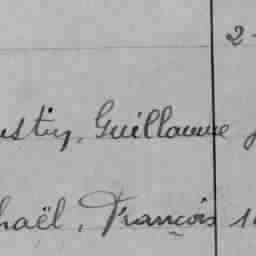 2-
ustin, Guillaume
haël, François 1